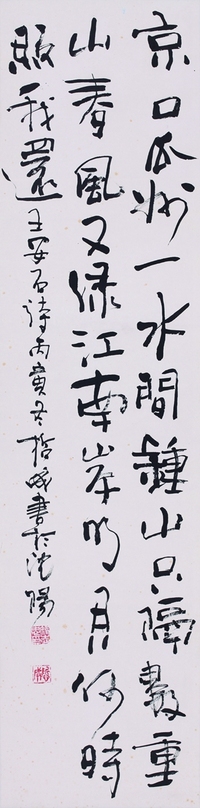 京口瓜洲一水間鍾山只隔數重
山春風又綠江南岸明月何時
照我還王安石詩丙寅冬哲成書於沈陽